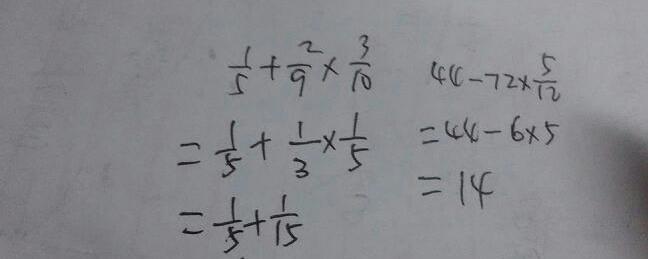 1/5 + 2/9 × 3/10
= 1/5 + 1/3 × 1/5
= 1/5 + 1/15
44 - 72 × 5/12
= 44 - 6 × 5
= 14